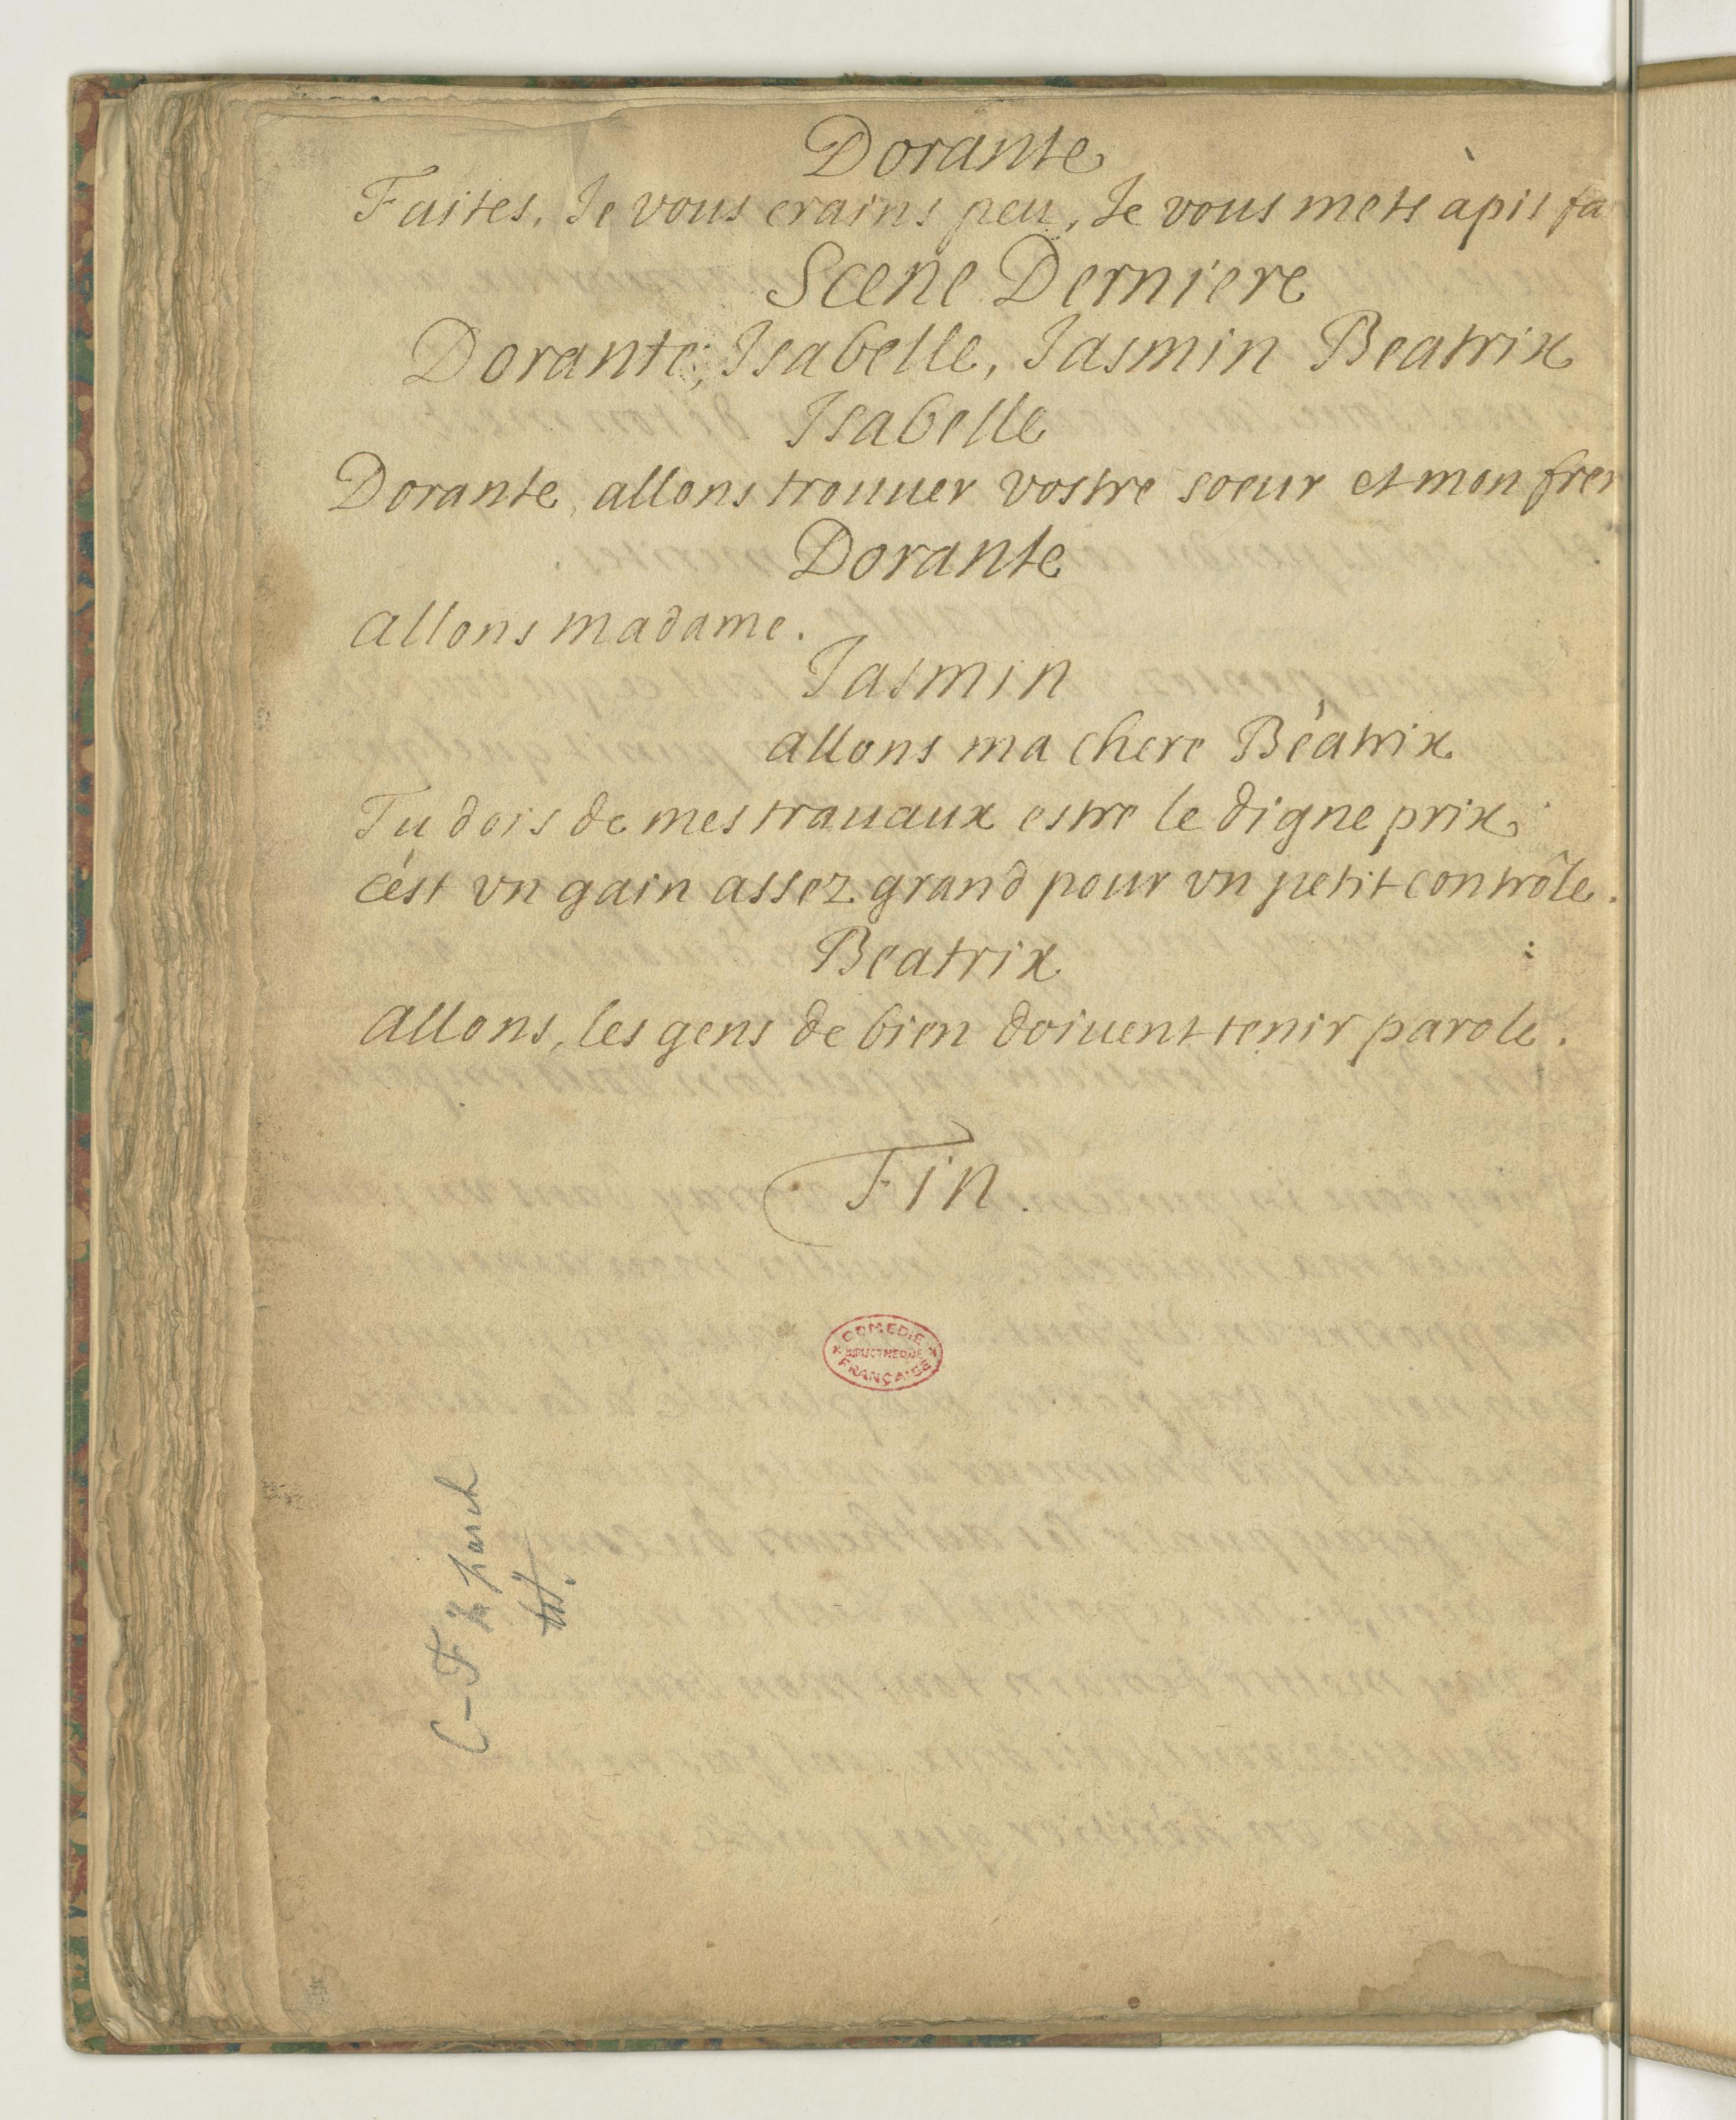 Dorante
Faites, Je vous crains peu, Je vous mets à pis fa
Scene Derniere
Dorante, Isabelle, Jasmin Beatrix
Isabelle
Dorante, allons trouuer vostre soeur et mon frer
Dorante
allons madame.
Jasmin
allons ma chere Béatrix
Tu dois de mes trauaux estre le digne prix,
c'est vn gain assez grand pour vn petit contrôle.
Beatrix
allons, les gens de bien doiuent tenir parole.
Fin.
COMEDIE
BIBLIOTHEQUE
FRANÇAISE
C-F